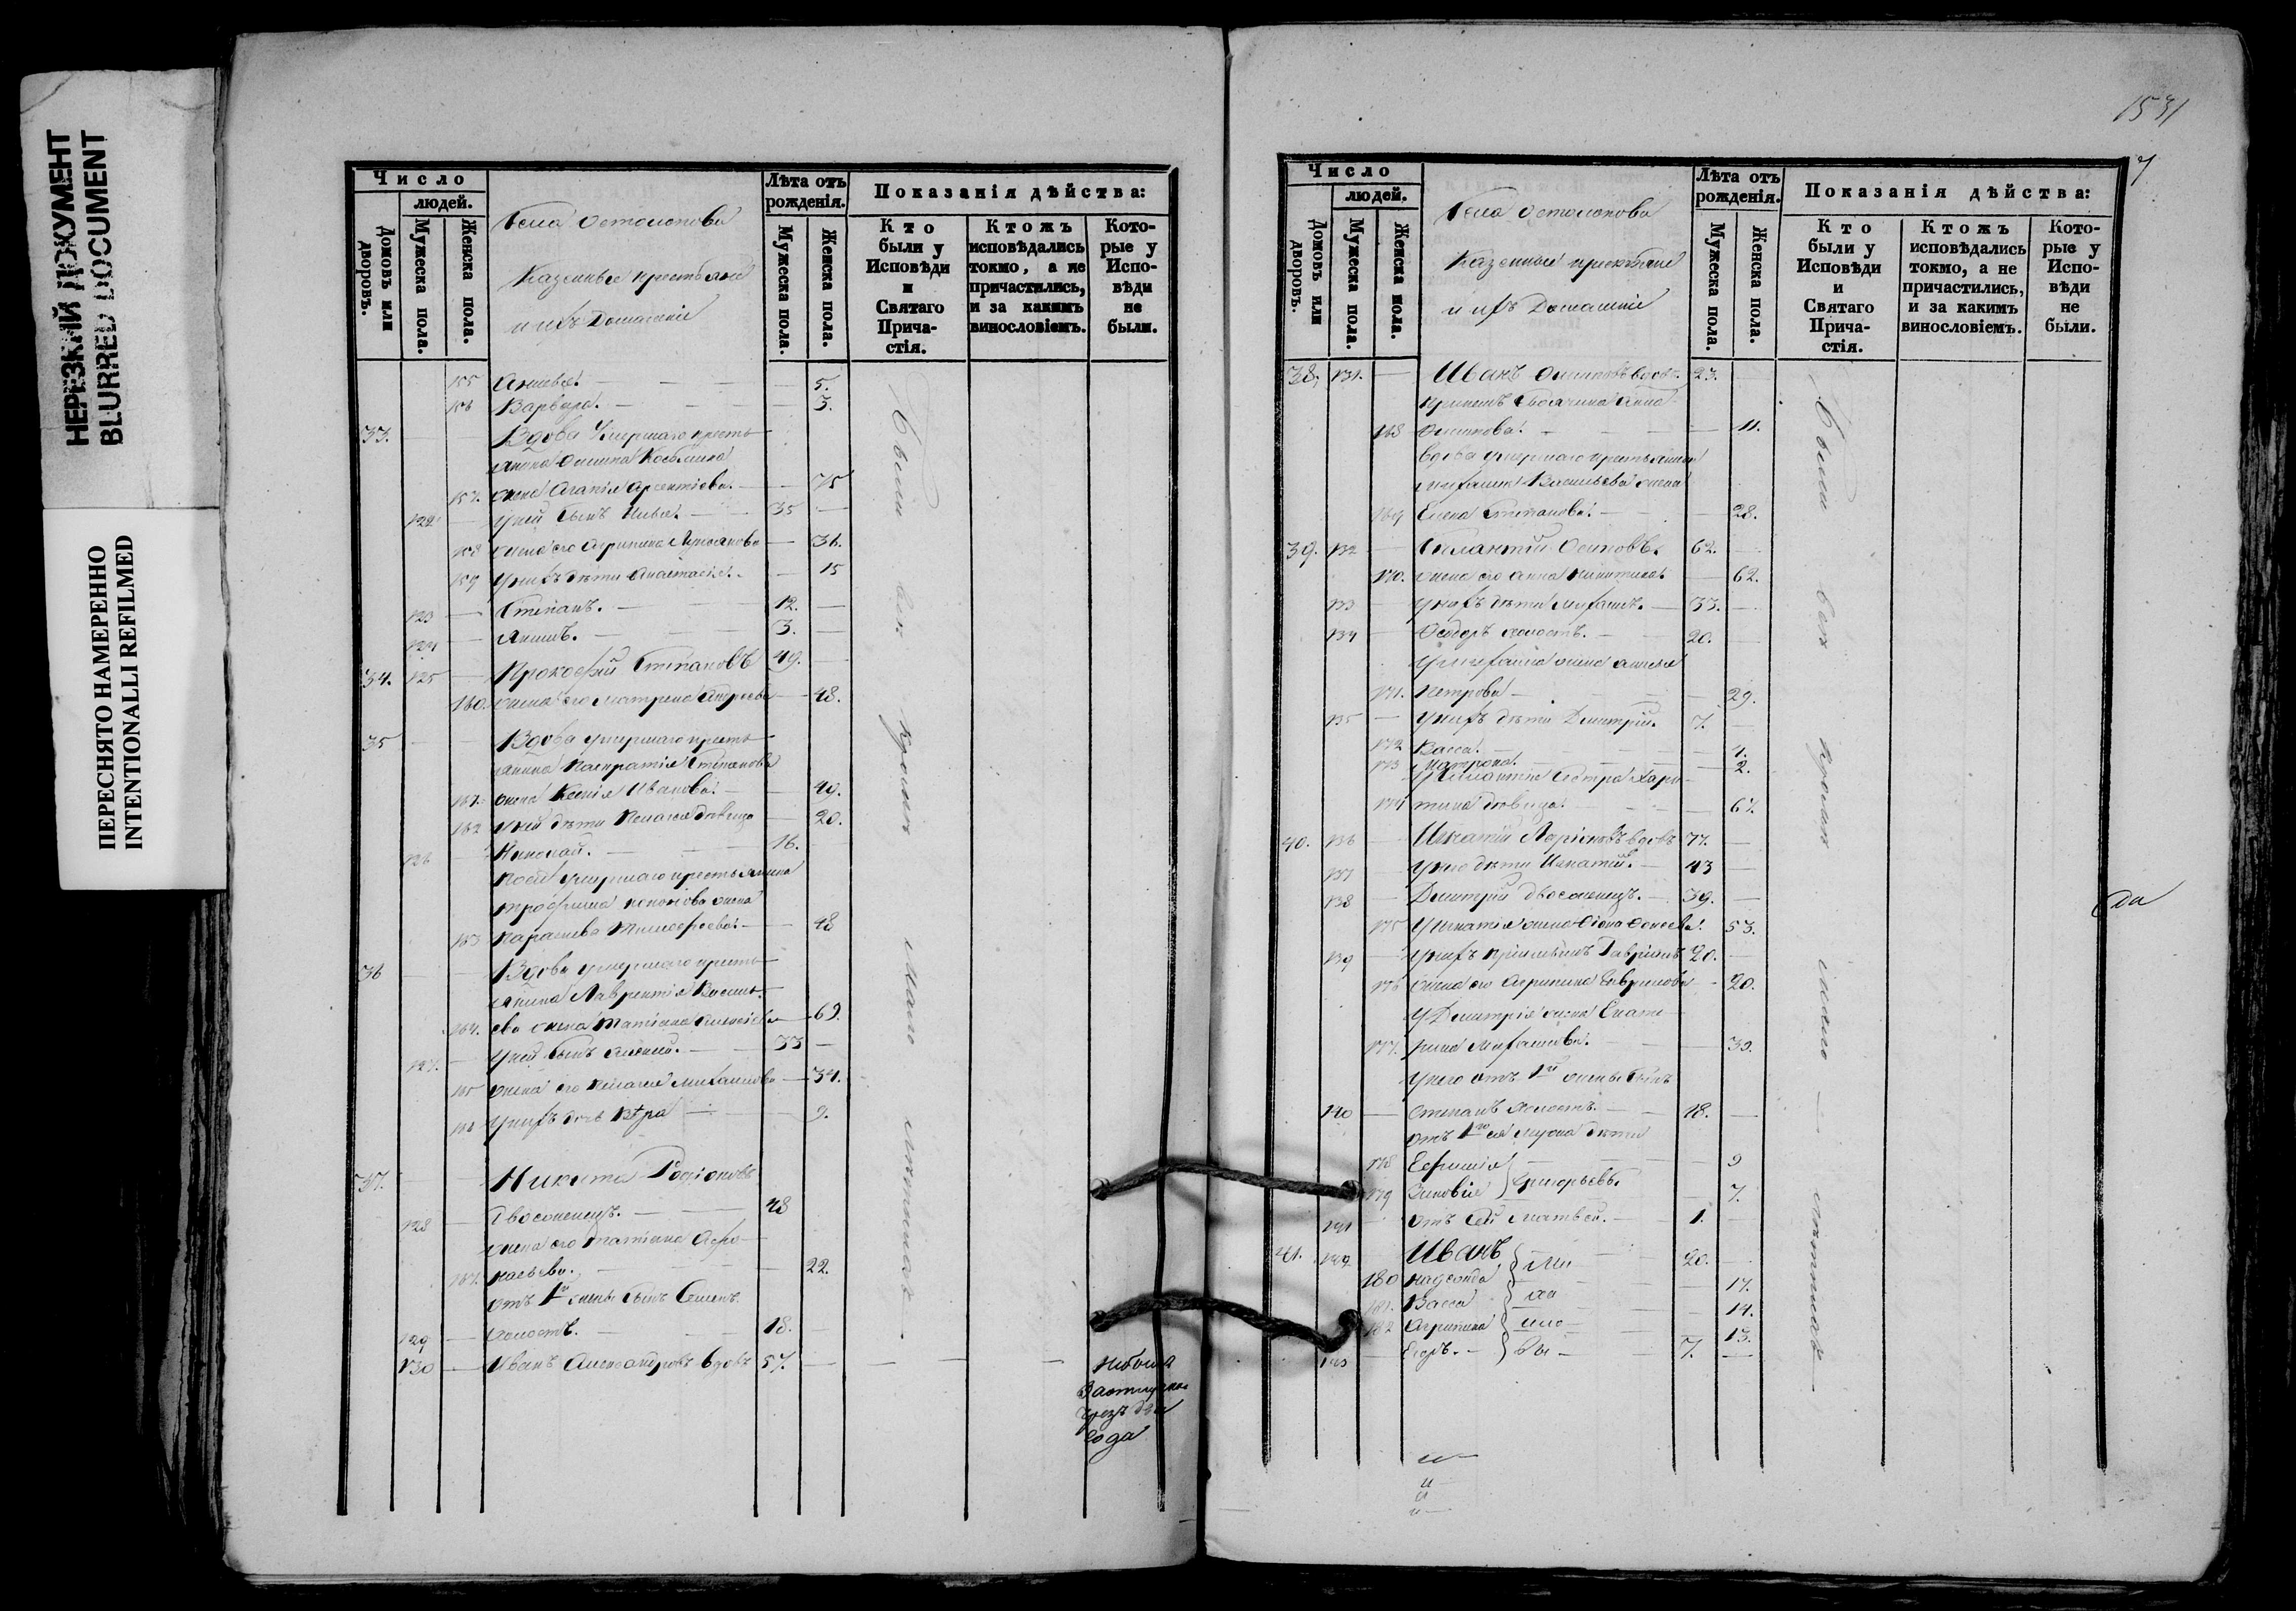 НЕРЕЗКИЙ ДОКУМЕНТ
BLURRED DOCUMENT
ПЕРЕСНЯТО НАМЕРЕННО
INTENTIONALLI REFILMED
Число
людей.
Домовъ или дворовъ.
Мужеска пола.
Женска пола.
Села Остолопова
Казенные крестьяне
и ихъ Домашніе
Лѣта отъ рожденія.
Мужеска пола.
Женска пола.
Показанія дѣйства:
Кто были у Исповѣди и Святаго Причастія.
Ктожъ исповѣдались токмо, а не причастились, и за какимъ винословіемъ.
Которые у Исповѣди не были.
155 5.
156 Варвара. 3.
33. Вдова Умершаго кресть-
янина Осипа Козьмина
157. жена Агапія 75
122. У ней сынъ Илья. 35
158 жена его Агрипина 36.
159 У нихъ дѣти Анастасія. 15
123 Степанъ. 12.
124 Якимъ. 3.
34. 125 Прокофій Степановъ 49.
160. жена его Матрена Андреева 48.
35 Вдова умершаго кресть-
янина Панкратія Степанова
161. жена Ксенія Иванова. 40.
162 У ней дѣти Пелагея дѣвица 20.
126 Николай. 16.
умершаго крестьянина
Трофима жена
163 Параскева Тимофеева. 48
36 Вдова умершаго кресть-
янина Лаврентія Василь-
164. ева жена Татіана Алексіева 69.
127. У ней сынъ Алексій. 33
165 жена его Пелагея Михаилова 34.
166 У нихъ дочь 9.
37. Никита Родіоновъ
128 Двоеженецъ. 48
жена его Татіана Афа-
167. насьева. 22.
отъ 1й жены сынъ Семенъ
129 холостъ. 18.
130 Иванъ Александровъ вдовъ 57.
Были вси кромѣ мало лѣтныхъ
Небылъ
года
1531
7
Число
людей.
Домовъ или дворовъ.
Мужеска пола.
Женска пола.
Села Остолопова
Казенные крестьяне
и ихъ Домашніе
Лѣта отъ рожденія.
Мужеска пола.
Женска пола.
Показанія дѣйства:
Кто были у Исповѣди и Святаго Причастія.
Ктожъ исповѣдались токмо, а не причастились, и за какимъ винословіемъ.
Которые у Исповѣди не были.
38. 131. Иванъ Осиповъ 23.
Анна
168 Осипова. 11.
Вдова умершаго крестьянина
Михаила Васильева жена
169 Елена Степанова. 28.
39. 132 Осиповъ. 62.
170. жена его Анна Никитина. 62.
133 У нихъ дѣти Михаилъ. 33.
134 Ѳеодоръ холостъ. 20.
У Михаила жена
171. Петрова 29.
135 У нихъ дѣти Димитрій. 7.
172 Васса. 4.
173 Матрона. 2.
сестра Хари-
174 тина дѣвица. 67.
40. 136 Игнатій Ларіоновъ вдовъ 77.
137 У него дѣти Игнатій. 43
138 Димитрій двоеженецъ. 39.
175 У Игнатія жена 53.
139 У нихъ Гавріилъ 20.
176 жена его Агрипина Гаврилова 20.
У Димитрія жена Екате-
177. рина Михаилова. 39.
У него отъ 1й жены сынъ
140 Степанъ холостъ. 18.
отъ 1го ея мужа дѣти
178 Ефимія 9
179 Зиновія Григорьевы. 7.
141 отъ сей Матвей. 1.
41. 142 Иванъ Ми- 20.
180 Надежда ха- 17.
181. Васса 14.
182 Агрипина ило- 13.
143 Егоръ. вы 7.
Были вси кромѣ мало лѣтныхъ